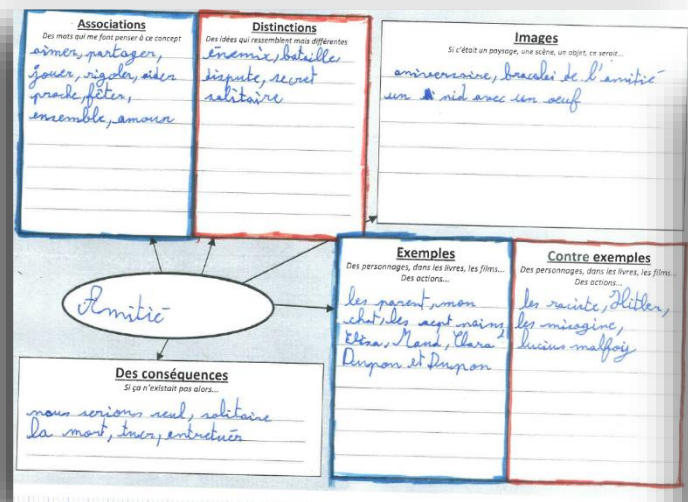 Associations
Des mots qui me font penser à ce concept
aimer, partager,
jouer, rigoler, aider
proche, fêter,
ensemble, amour
Distinctions
Des idées qui ressemblent mais différentes
énemix, bataille
dispute, secret
solitaire
Images
Si c'était un paysage, une scène, un objet, ce serait...
aniversaire, bracelei de l'amitié
un nid avec un oeuf
Amitié
Exemples
Des personnages, dans les livres, les films...
Des actions...
les parent, mon
chat, les sept nains
Elisa, Mana, Clara
Dupon et Dupon
Contre exemples
Des personnages, dans les livres, les films...
Des actions...
les raciste, Hitler,
les misogine,
lucius malfoy
Des conséquences
Si ça n'existait pas alors...
nous serions seul, solitaire
la mort, tuer, entretuér